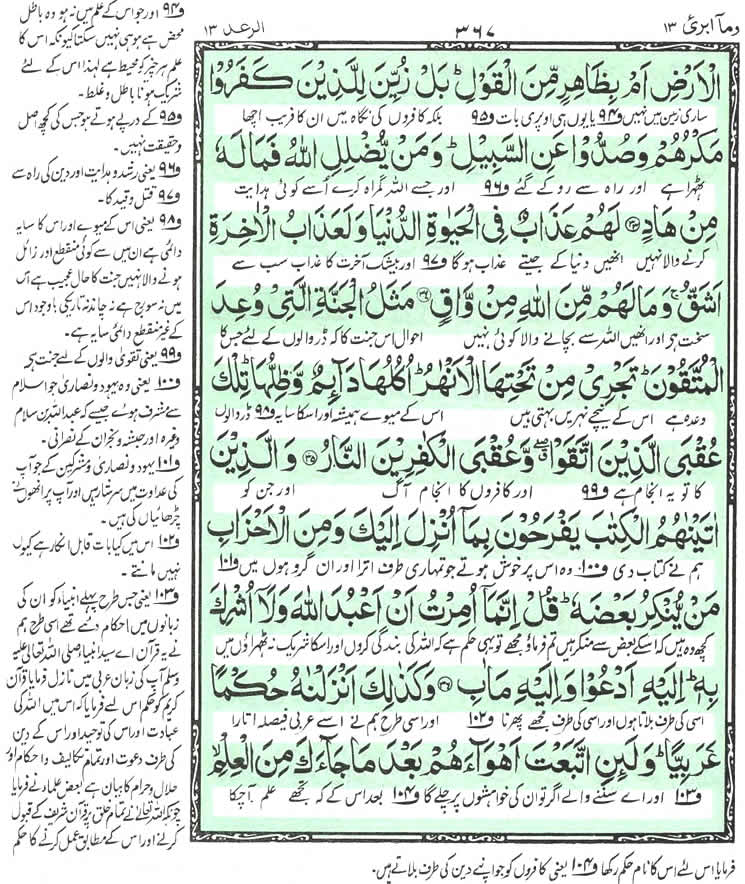 وما ابرئ ١٣
٣٦٧
الرعد ١٣
الْاَرْضِ اَمْ بِظَاهِرٍ مِّنَ الْقَوْلِ ؕ بَلْ زُیِّنَ لِلَّذِیْنَ كَفَرُوْا
ساری زمین میں نہیں ف۹۴ یا یوں ہی اوپری بات ف۹۵ بلکہ کافروں کی نگاہ میں ان کا فریب اچھا
مَكْرُهُمْ وَصُدُّوْا عَنِ السَّبِیْلِ ؕ وَمَنْ یُّضْلِلِ اللّٰهُ فَمَا لَهٗ
ٹھہرا ہے اور راہ سے روکے گئے ف۹۶ اور جسے اللہ گمراہ کرے اُسے کوئی ہدایت
مِنْ هَادٍ ۝۳۳ لَهُمْ عَذَابٌ فِی الْحَیٰوةِ الدُّنْیَا وَلَعَذَابُ الْاٰخِرَةِ
کرنے والا نہیں انھیں دنیا کے جیتے عذاب ہوگا ف۹۷ اور بیشک آخرت کا عذاب سب سے
اَشَقُّ ۚ وَمَا لَهُمْ مِّنَ اللّٰهِ مِنْ وَّاقٍ ۝۳۴ مَثَلُ الْجَنَّةِ الَّتِیْ وُعِدَ
سخت ہے اور انھیں اللہ سے بچانے والا کوئی نہیں احوال اس جنت کا کہ ڈر والوں کے لئے جس کا
الْمُتَّقُوْنَ ؕ تَجْرِیْ مِنْ تَحْتِهَا الْاَنْهٰرُ ؕ اُكُلُهَا دَآىِٕمٌ وَّظِلُّهَا ؕ تِلْكَ
وعدہ ہے اس کے نیچے نہریں بہتی ہیں اس کے میوے ہمیشہ اور اسکا سایہ ف۹۸ ڈر والوں
عُقْبَى الَّذِیْنَ اتَّقَوْا ۖۗ وَّعُقْبَى الْكٰفِرِیْنَ النَّارُ ۝۳۵ وَالَّذِیْنَ
کا تو یہ انجام ہے ف۹۹ اور کافروں کا انجام آگ اور جن کو
اٰتَیْنٰهُمُ الْكِتٰبَ یَفْرَحُوْنَ بِمَاۤ اُنْزِلَ اِلَیْكَ وَمِنَ الْاَحْزَابِ
ہم نے کتاب دی ف۱۰۰ وہ اس پر خوش ہوتے جو تمہاری طرف اترا اور ان گروہوں میں ف۱۰۱
مَنْ یُّنْكِرُ بَعْضَهٗ ؕ قُلْ اِنَّمَاۤ اُمِرْتُ اَنْ اَعْبُدَ اللّٰهَ وَلَاۤ اُشْرِكَ
کچھ وہ ہیں کہ اسکے بعض سے منکر ہیں تم فرماؤ مجھے تو یہی حکم ہے کہ اللہ کی بندگی کروں اور اسکا شریک نہ ٹھہراؤں میں
بِهٖ ؕ اِلَیْهِ اَدْعُوْا وَاِلَیْهِ مَاٰبِ ۝۳۶ وَكَذٰلِكَ اَنْزَلْنٰهُ حُكْمًا
اسی کی طرف بلاتا ہوں اور اسی کی طرف مجھے پھرنا ف۱۰۲ اور اسی طرح ہم نے اسے عربی فیصلہ اتارا
عَرَبِیًّا ؕ وَلَىِٕنِ اتَّبَعْتَ اَهْوَآءَهُمْ بَعْدَ مَا جَآءَكَ مِنَ الْعِلْمِ ۙ
ف۱۰۳ اور اے سننے والے اگر تو ان کی خواہشوں پر چلے گا ف۱۰۴ بعد اس کے کہ تجھے علم آچکا
ف۹۴ اور جو اس کے علم میں نہ ہو وہ باطل
محض ہے ہو ہی نہیں سکتا کیونکہ اس کا
علم ہر چیز کو محیط ہے لہذا اس کے لئے
شریک ہونا باطل و غلط۔
ف۹۵ کے درپے ہوتے ہو جس کی کچھ اصل
و حقیقت نہیں۔
ف۹۶ یعنی رشد و ہدایت اور دین کی راہ سے
ف۹۷ قتل و قید کا۔
ف۹۸ یعنی اس کے میوے اور اس کا سایہ
دائمی ہے ان میں سے کوئی منقطع اور زائل
ہونے والا نہیں جنت کا حال عجیب ہے اس
میں نہ سورج ہے نہ چاند نہ تاریکی باوجود اس
کے غیر منقطع دائمی سایہ ہے۔
ف۹۹ یعنی تقوٰی والوں کے لئے جنت ہے
ف۱۰۰ یعنی وہ یہود و نصاریٰ جو اسلام
سے مشرف ہوئے جیسے کہ عبداللہ بن سلام
وغیرہ اور حبشہ و نجران کے نصرانی۔
ف۱۰۱ یہود و نصاریٰ و مشرکین کے جو آپ
کی عداوت میں سرشار ہیں اور آپ پر انھوں نے
چڑھائیاں کی ہیں۔
ف۱۰۲ اس میں کیا بات قابل انکار ہے کیوں
نہیں مانتے۔
ف۱۰۳ یعنی جس طرح پہلے انبیاء کو ان کی
زبانوں میں احکام دیئے تھے اسی طرح ہم
نے یہ قرآن اے سید انبیا صلی اللہ تعالیٰ علیہ
وسلم آپ کی زبان عربی میں نازل فرمایا قرآن
کریم کو حکم اس لئے فرمایا کہ اس میں اللہ کی
عبادت اور اس کی توحید اور اس کے دین
کی طرف دعوت اور تمام تکالیف و احکام اور
حلال و حرام کا بیان ہے بعض علماء نے فرمایا
چونکہ اللہ تعالیٰ نے تمام خلق پر قرآن شریف کے قبول
کرنے اور اس کے مطابق عمل کرنے کا حکم
فرمایا اس لئے اس کا نام حکم رکھا ف۱۰۴ یعنی کافروں کو جو اپنے دین کی طرف بلاتے ہیں۔